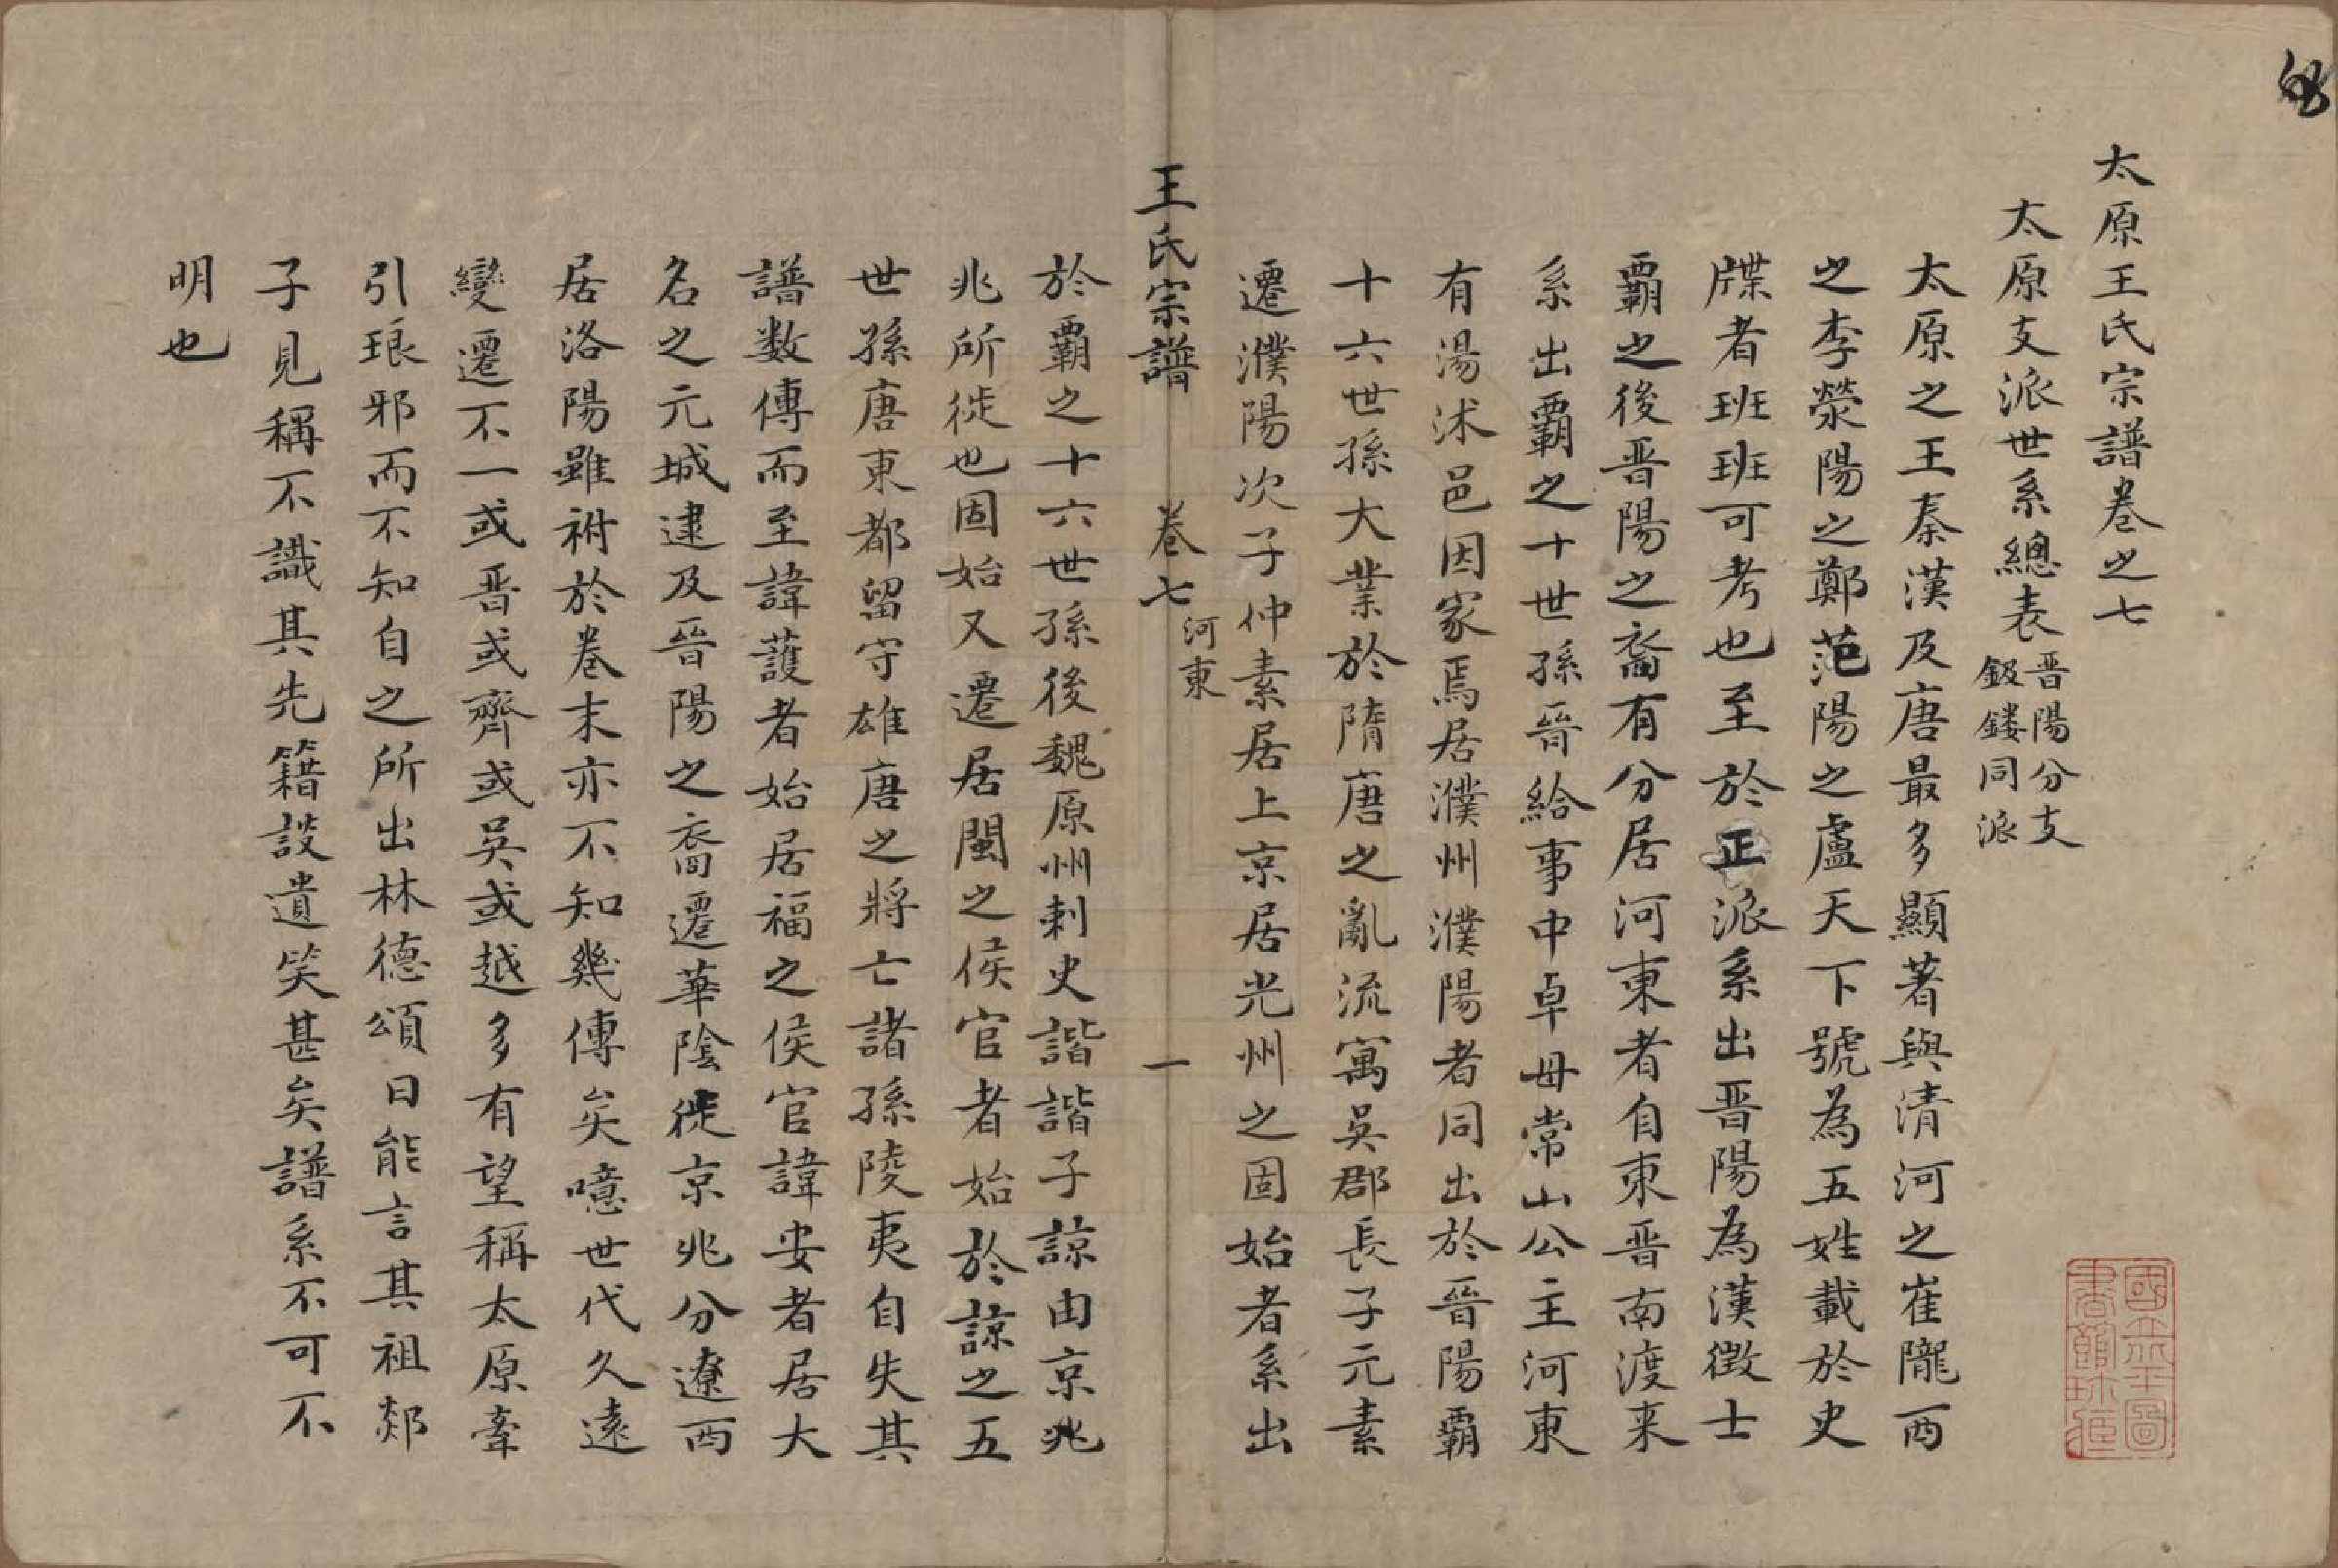 太原王氏宗譜卷之七
太原支派世系總表
晋陽分支
鈒鏤同派
太原之王秦漢及唐最多顯著與清河之崔隴西
之李滎陽之鄭范陽之盧天下號為五姓載於史
牒者班班可考也至於正派系出晋陽為漢徵士
霸之後晋陽之裔有分居河東者自東晋南渡来
系出霸之十世孫晉給事中卓毋常山公主河東
有湯沭邑因家焉居濮州濮陽者同出於晉陽霸
十六世孫大業於隋唐之亂流寓吳郡長子元素
遷濮陽次子仲素居上京居光州之固始者系出
王氏宗譜 卷七 河東 一
於霸之十六世孫後魏原州剌史諧諧子諒由京兆
兆所徙也固始又遷居閩之侯官者始於諒之五
世孫唐東都留守雄唐之將亡諸孫陵夷自失其
譜数傳而至諱護者始居福之侯官諱安者居大
名之元城逮及晉陽之裔遷華陰徙京兆分遼西
居洛陽雖祔於卷末亦不知幾傳矣噫世代久遠
變遷不一或晋或齊或吳或越多有望稱太原牽
引琅邪而不知自之所出林德頌日能言其祖郯
子見稱不識其先籍談遺笑甚矣譜系不可不
明也
國立北平圖
書館珍藏